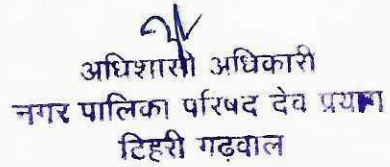 अधिशासी अधिकारी
नगर पालिका परिषद देव प्रयाग
टिहरी गढवाल